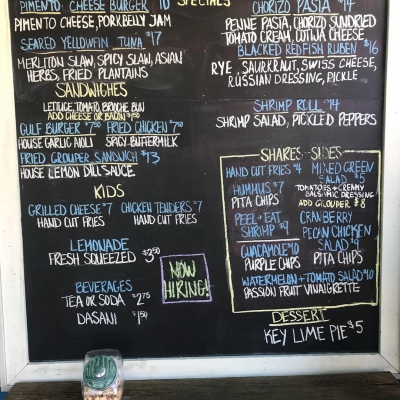 SPECIALS
PIMENTO CHEESE BURGER
PIMENTO CHEESE, PORKBELLY JAM
SEARED YELLOWFIN TUNA $17
MERLITON SLAW, SPICY SLAW, ASIAN
HERBS, FRIED PLANTAINS
SANDWICHES
LETTUCE, TOMATO, BRIOCHE BUN
ADD CHEESE OR BACON $1.50
GULF BURGER $7.50 FRIED CHICKEN $7.50
HOUSE GARLIC AIOLI SPICY BUTTERMILK
FRIED GROUPER SANDWICH $13
HOUSE LEMON DILL SAUCE
KIDS
GRILLED CHEESE $7 CHICKEN TENDERS $7
HAND CUT FRIES HAND CUT FRIES
LEMONADE
FRESH SQUEEZED $3.50
BEVERAGES
TEA OR SODA $2.75
DASANI $1.50
NOW
HIRING!
CHORIZO PASTA $14
PENNE PASTA, CHORIZO, SUNDRIED
TOMATO CREAM, COTIJA CHEESE
BLACKED REDFISH RUBEN $16
RYE, SAURKRAUT, SWISS CHEESE,
RUSSIAN DRESSING, PICKLE
SHRIMP ROLL $14
SHRIMP SALAD, PICKLED PEPPERS
SHARES - SIDES
HAND CUT FRIES $4
HUMMUS $7
PITA CHIPS
PEEL + EAT
SHRIMP $9
GUACAMOLE $10
PURPLE CHIPS
MIXED GREEN
SALAD $5
TOMATOES + CREAMY
BALSAMIC DRESSING
ADD GROUPER $8
CRANBERRY
PECAN CHICKEN
SALAD $9
PITA CHIPS
WATERMELON + TOMATO SALAD $10
PASSION FRUIT VINAIGRETTE
DESSERT
KEY LIME PIE $5